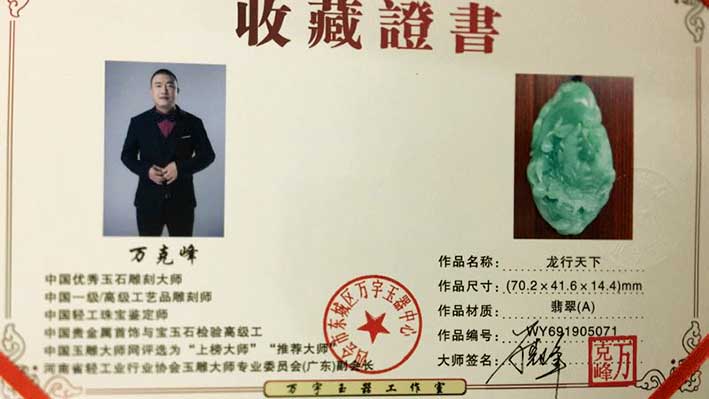 收藏證書
万克峰
中国优秀玉石雕刻大师
中国一级/高级工艺品雕刻师
中国轻工珠宝鉴定师
中国贵金属首饰与宝玉石检验高级工
中国玉雕大师网评选为“上榜大师”“推荐大师”
河南省轻工业行业协会玉雕大师专业委员会(广东)副会长
四会市东城区万字玉器中心
作品名称: 龙行天下
作品尺寸: (70.2×41.6×14.4)mm
作品材质: 翡翠(A)
作品编号: WY691905071
大师签名:
万克峰
万字玉器工作室